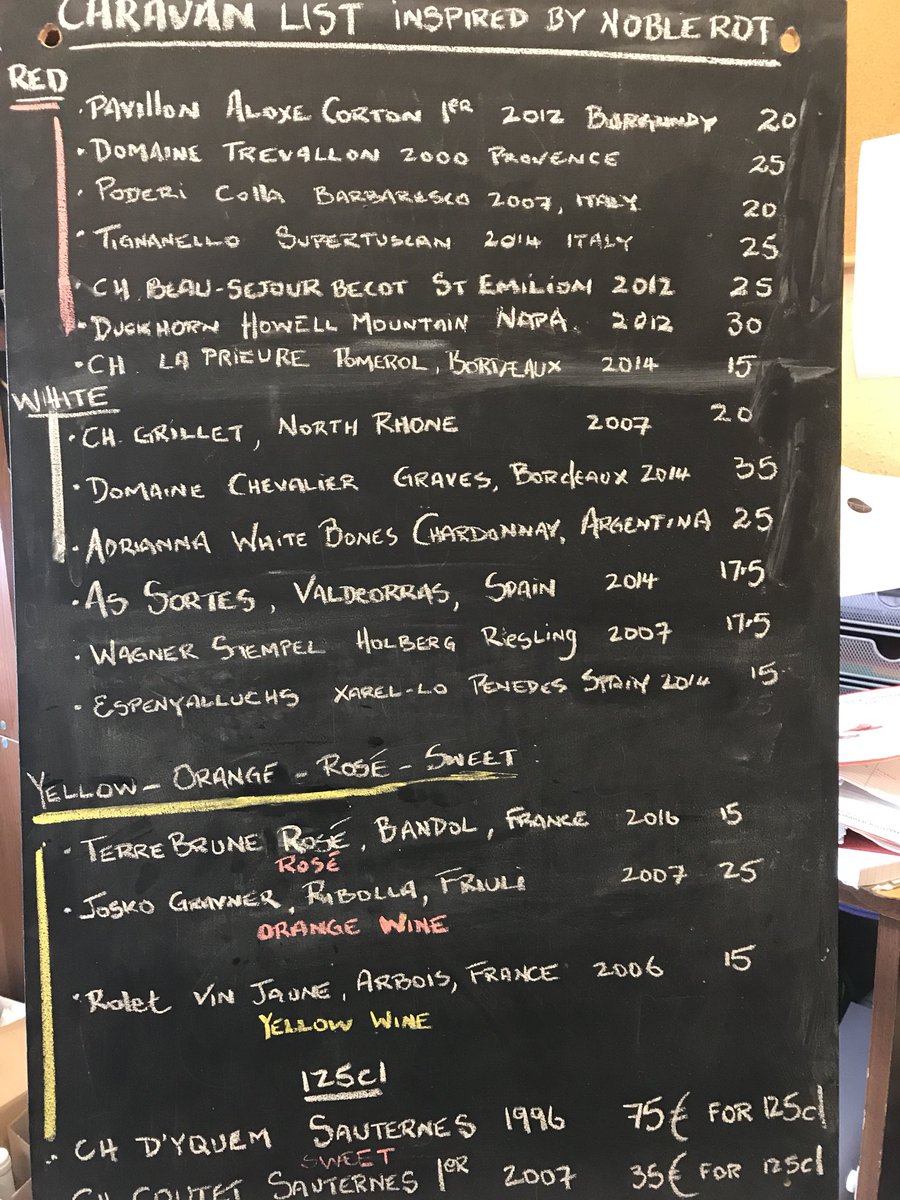 CARAVAN LIST INSPIRED BY NOBLE ROT
RED
· PAVILLON ALOXE CORTON 1ER 2012 BURGUNDY 20
· DOMAINE TREVALLON 2000 PROVENCE 25
· PODERI COLLA BARBARESCO 2007, ITALY 20
· TIGNANELLO SUPERTUSCAN 2014 ITALY 25
· CH BEAU-SEJOUR BECOT ST EMILION 2012 25
· DUCKHORN HOWELL MOUNTAIN NAPA. 2012 30
· CH. LA PRIEURE POMEROL, BORDEAUX 2014 15
WHITE
· CH. GRILLET, NORTH RHONE 2007 20
· DOMAINE CHEVALIER GRAVES, BORDEAUX 2014 35
· ADRIANNA WHITE BONES CHARDONNAY, ARGENTINA 25
· AS SORTES, VALDEORRAS, SPAIN 2014 17.5
· WAGNER STEMPEL HOLBERG Riesling 2007 17.5
· ESPENYALLUCHS XAREL-LO PENEDES SPAIN 2014 15
YELLOW - ORANGE - ROSÉ - SWEET
· TERRE BRUNE ROSÉ, BANDOL, FRANCE 2016 15
ROSÉ
· JOSKO GRAVNER, RIBOLLA, FRIULI 2007 25
ORANGE WINE
· Rolet VIN JAUNE, ARBOIS, FRANCE 2006 15
YELLOW WINE
125cl
· CH D'YQUEM SAUTERNES 1996 75€ FOR 125cl
SWEET
CH COUTET SAUTERNES 1ER 2007 35€ FOR 125cl